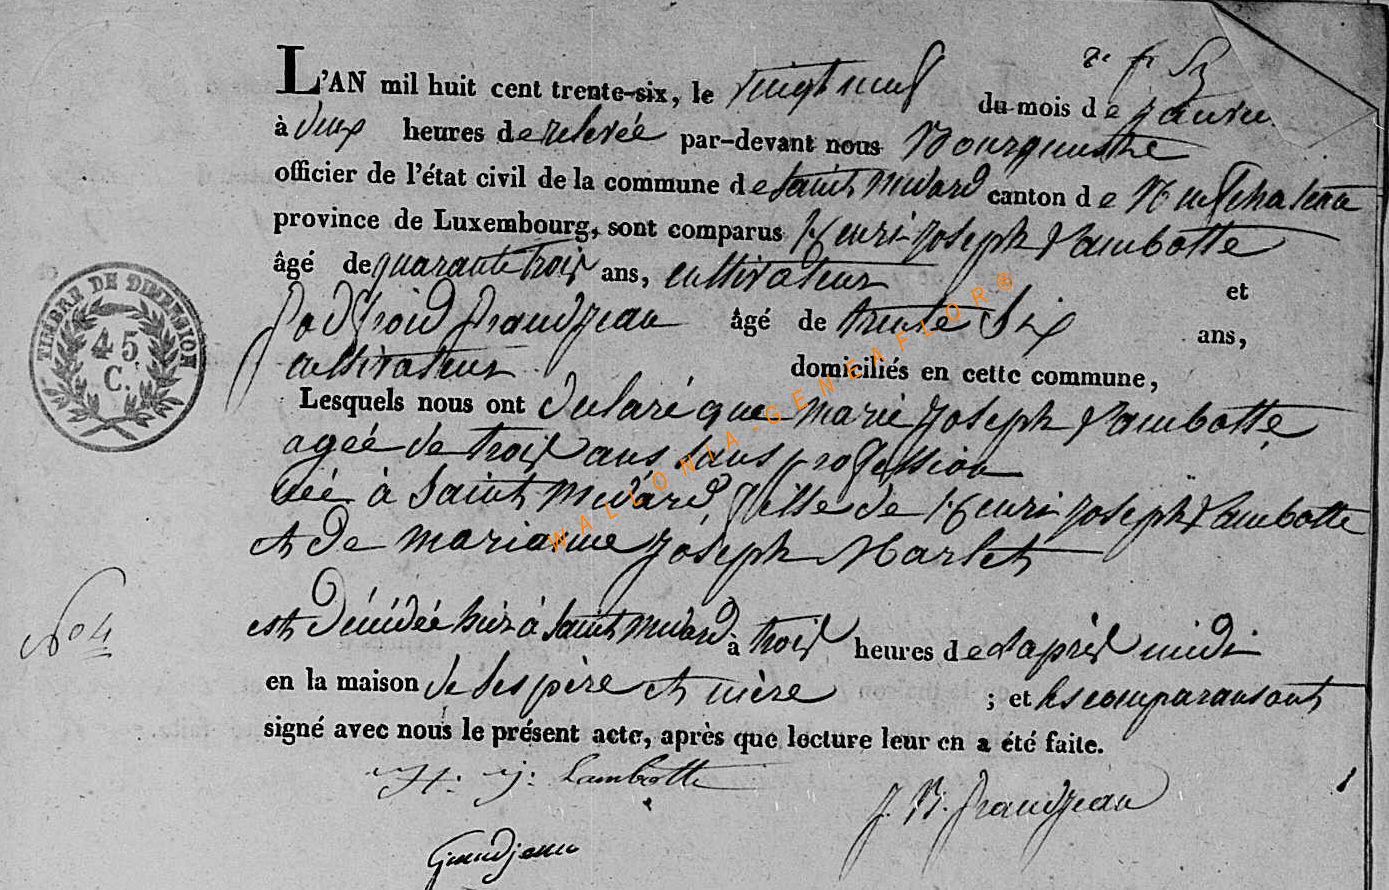 L'AN mil huit cent trente-six, le vingt neuf du mois de janvier
à deux heures de relevée par-devant nous Bourgmestre
officier de l'état civil de la commune de Saint Médard canton de Neufchateau
province de Luxembourg, sont comparus Henri Joseph Lambotte
âgé de quarante trois ans, cultivateur et
Grandjean âgé de trente Six ans,
cultivateur domiciliés en cette commune,
Lesquels nous ont declaré que marie Joseph Lambotte
agée de trois ans sans profession
née à Saint Médard fille de Henri Joseph Lambotte
et de marianne Joseph
est décédée hier à Saint Médard à trois heures de l'après midi
en la maison de ses père et mère ; et les comparans ont
signé avec nous le présent acte, après que lecture leur en a été faite.
H. J. Lambotte
J. N. Grandjean
Grandjean
No 4
TIMBRE DE DIMENSION
45
C.
WALLONIA-GENEAFLOR®